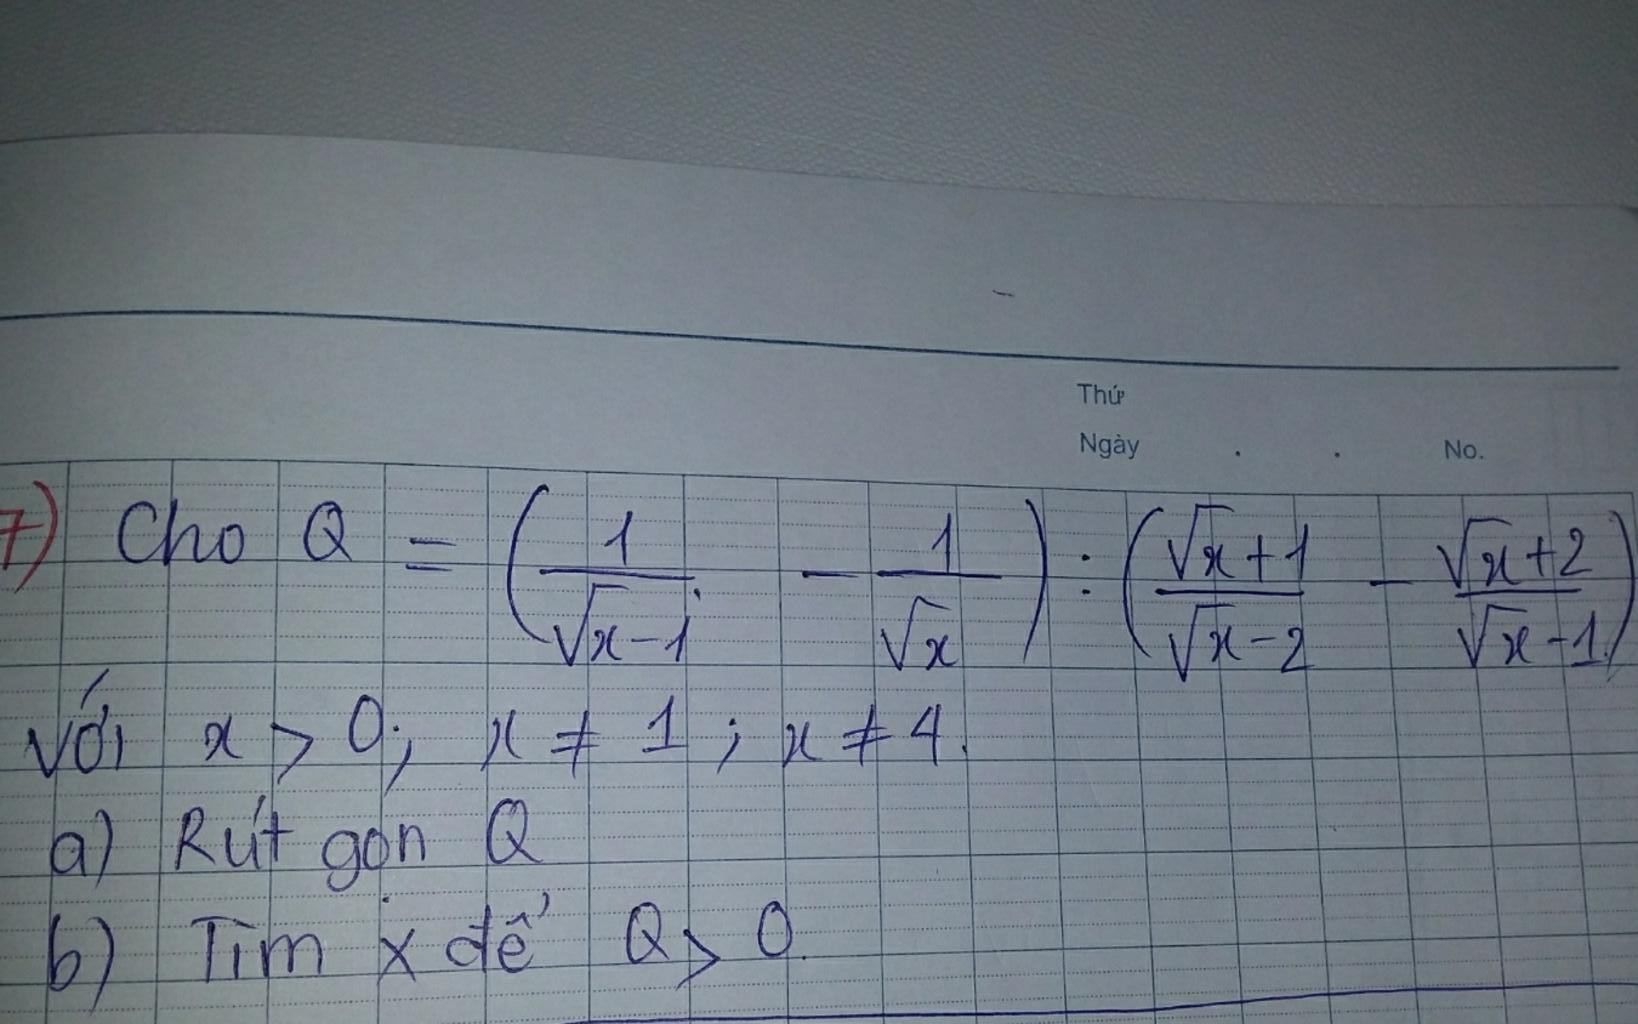 Thứ
Ngày . . No.
7) Cho Q = (1/(√x-1) - 1/√x) : ((√x+1)/(√x-2) - (√x+2)/(√x-1))
với x > 0; x ≠ 1; x ≠ 4.
a) Rút gọn Q
b) Tìm x để Q > 0.